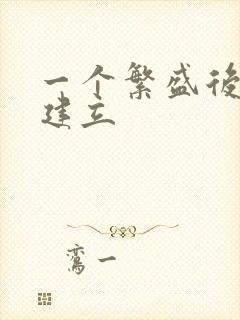 一个繁盛後
建立
鸾一